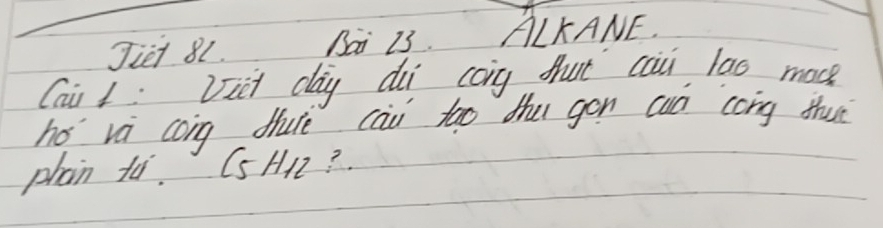 Tiết 82. Bài 23. ALKANE.
Câu 1: Viết đầy đủ công thức cấu tạo mạch
hở và công thức cấu tạo thu gọn của công thức
phân tử. C5H12?.